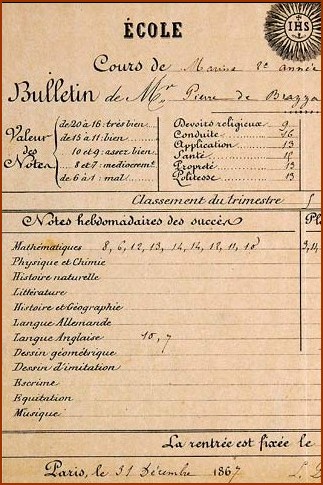 ÉCOLE
IHS
Cours de Marine 2e année
Bulletin de Mr Pierre de Brazza
Valeur des Notes
de 20 à 16: très bien
de 15 à 11: bien
10 et 9: assez bien
8 et 7: médiocremt
de 6 à 1: mal
Devoirs religieux 9
Conduite 16
Application 13
Santé
Propreté 13
Politesse 13
Classement du trimestre
Notes hebdomadaires des succès
Mathématiques 8, 6, 12, 13, 14, 14, 12, 11, 10
Physique et Chimie
Histoire naturelle
Littérature
Histoire et Géographie
Langue Allemande
Langue Anglaise 10, 7
Dessin géométrique
Dessin d'imitation
Escrime
Equitation
Musique
La rentrée est fixée le
Paris, le 31 Décembre 1867